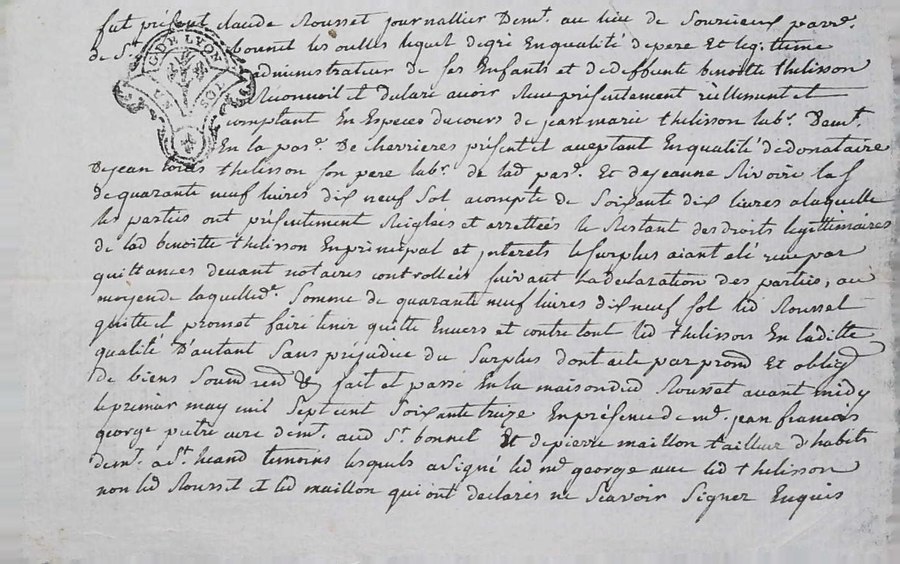 fut présent claude Rousset journallier Demt. au lieu de Sourcieux parre.
de St. bonnet les oulles lequel degré En qualité de pere Et legitime
administrateur de ses Enfants et de deffunte benoitte thelisson
Reconnoit et declare avoir Reçu présentement réellement et
comptant En Especes du cours de jean marie thelisson labr. Demt.
En la parre. De chevrieres présent et aceptant En qualité de donataire
De jean louis thelisson son pere labr. de lad parre. Et de jeanne Rivoire la s
de quarante neuf livres dix neuf sol acompte de Soixante dix livres a laquelle
les parties ont présentement Reiglés et arrettées le Restant des droits legittimaires
de lad benoitte thelisson En principal et interets le surplus aiant eté reçu par
quittances devant notaires controllées suivant la declaration des parties, au
moyen de laquelle de. Somme de quarante neuf livres dix neuf sol led Rousset
quitte et promet faire tenir quitte Envers et contre tout led thelisson En laditte
qualité D'autant Sans préjudice du Surplus dont acte par prond Et obligd
de biens Soumd rend & fait et passé En la maison dud Rousset avant midy
le premier may mil Sept cent Soixante treize En présence de mr. jean francois
george pretre curé demt. aud St. bonnet Et de pierre maillon tailleur d'habits
demt. a St. heand temoins lesquels a signé led mr george avec led thelisson
non led Rousset et led maillon qui ont declarés ne Scavoir Signer Enquis
G. DE LYON